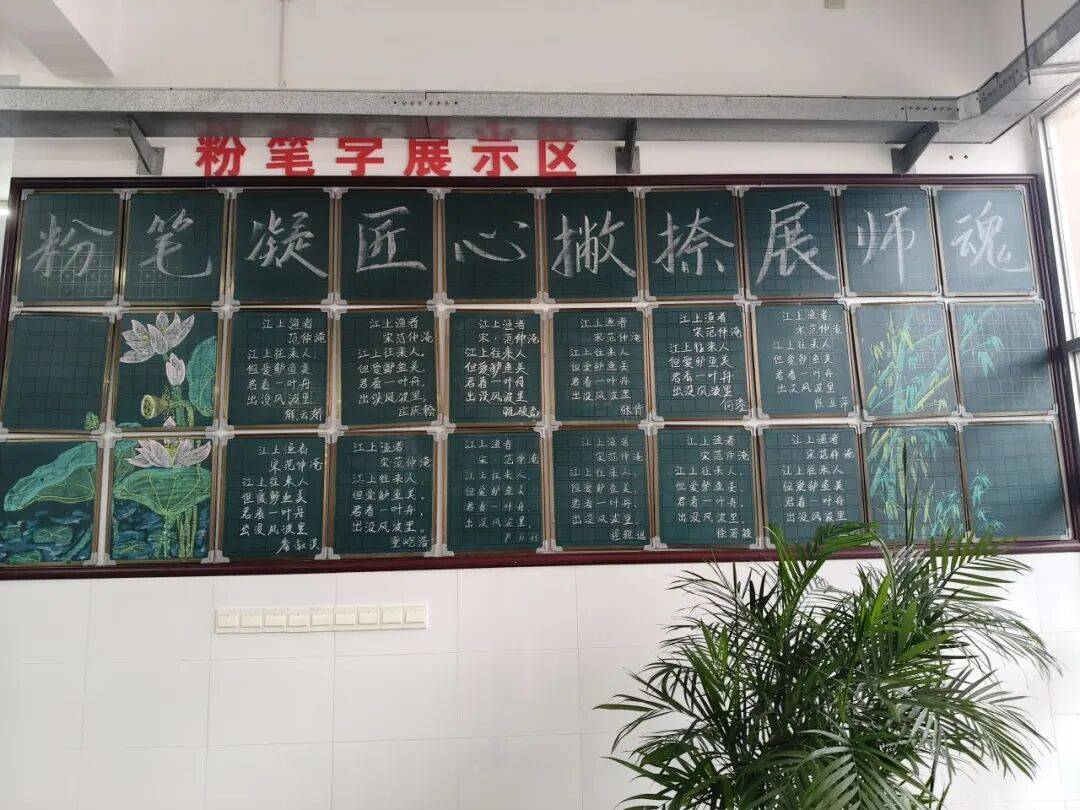 粉笔字展示区
粉笔凝匠心撇捺展师魂
江上渔者
范仲淹
江上往来人,
但爱鲈鱼美。
君看一叶舟,
出没风波里
江上渔者
宋范仲淹
江上往来人,
但爱鲈鱼美。
君看一叶舟,
出没风波里。
江上渔者
宋·范仲淹
江上往来人
但爱鲈鱼美
君看一叶舟
出没风波里
江上渔者
宋范仲淹
江上往来人
但爱鲈鱼美
君看一叶舟
出没风波里
张肖
江上渔者
宋范仲淹
江上往来人
但爱鲈鱼美。
君看一叶舟,
出没风波里
江上渔者
宋范仲淹
江上往来人
但爱鲈鱼美
君看一叶舟
出没风波里
江上渔者
宋范仲淹
江上往来人
但爱鲈鱼美
君看一叶舟
出没风波里
江上渔者
宋范仲淹
江上往来人,
但爱鲈鱼美。
君看一叶舟,
出没风波里。
童屹浩
江上渔者
宋 范仲淹
江上往来人,
但爱鲈鱼美。
君看一叶舟,
出没风波里。
江上渔者
宋范仲淹
江上往来人,
但爱鲈鱼美。
君看一叶舟
出没风波里
江上渔者
宋范仲淹
江上往来人,
但爱鲈鱼美。
君看一叶舟,
出没风波里
徐若薇
江上渔者
宋范仲淹
江上往来人,
但爱鲈鱼美。
君看一叶舟,
出没风波里。